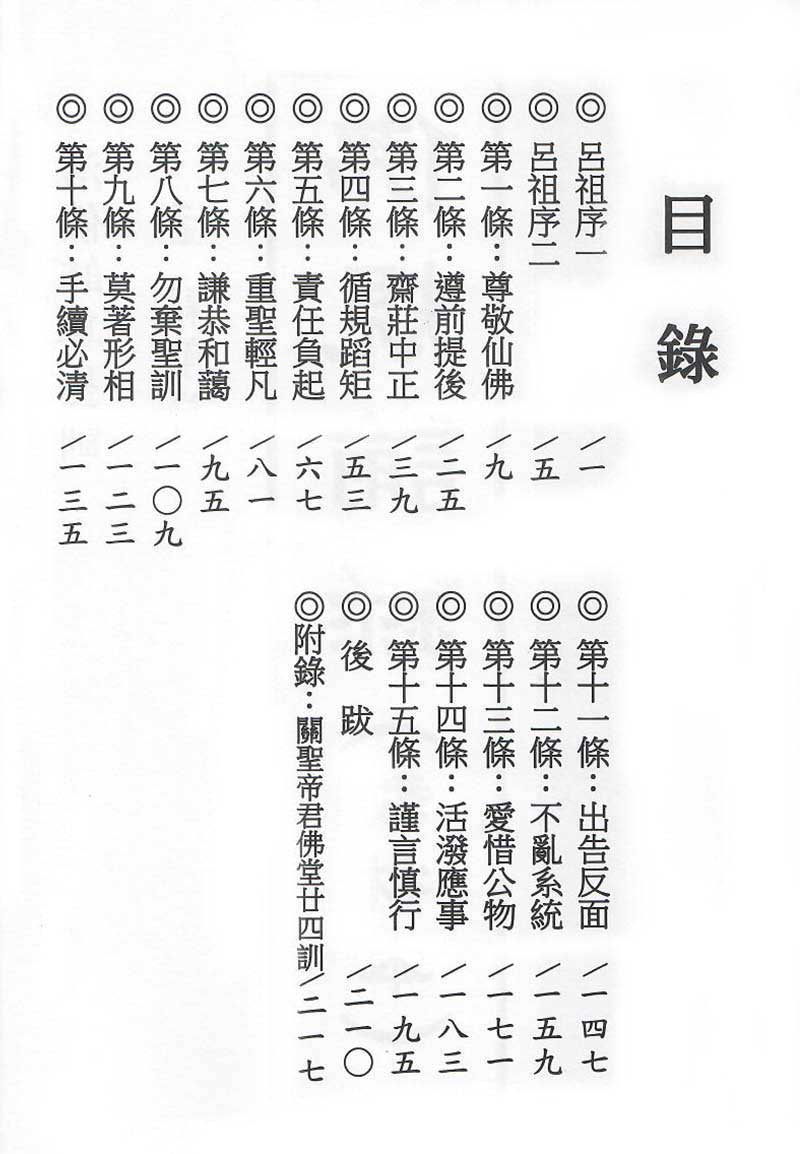 目錄
◎ 呂祖序一 /一
◎ 呂祖序二 /五
◎ 第一條：尊敬仙佛 /九
◎ 第二條：遵前提後 /二五
◎ 第三條：齋莊中正 /三九
◎ 第四條：循規蹈矩 /五三
◎ 第五條：責任負起 /六七
◎ 第六條：重聖輕凡 /八一
◎ 第七條：謙恭和藹 /九五
◎ 第八條：勿棄聖訓 /一〇九
◎ 第九條：莫著形相 /一二三
◎ 第十條：手續必清 /一三五
◎ 第十一條：出告反面 /一四七
◎ 第十二條：不亂系統 /一五九
◎ 第十三條：愛惜公物 /一七一
◎ 第十四條：活潑應事 /一八三
◎ 第十五條：謹言慎行 /一九五
◎ 後跋 /二一〇
◎ 附錄：關聖帝君佛堂廿四訓 /二一七